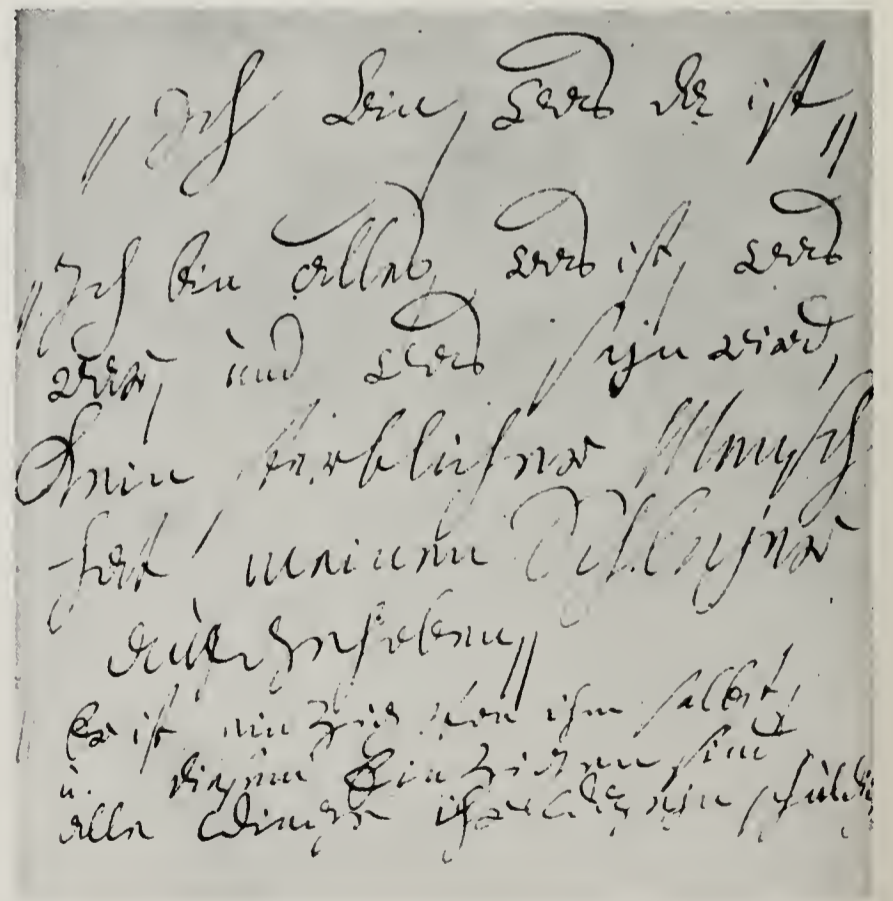 „Ich bin, was da ist„
„Ich bin alles, was ist, was
war, und was seyn wird,
Kein sterblicher Mensch
hat meinen Schleyer
aufgehoben„
Er ist einzig von ihm selbst,
u. diesem Einzigen sind
alle Dinge ihr Daseyn schuldig